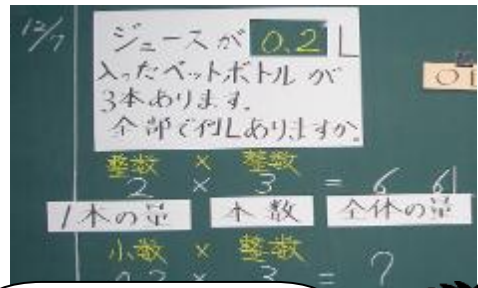 12/7
ジュースが 0.2 L
入ったペットボトルが
3本あります。
全部で何Lありますか。
整数 × 整数
2 × 3 = 6 6l
1本の量 本数 全体の量
小数 × 整数
0.2 × 3 = ?